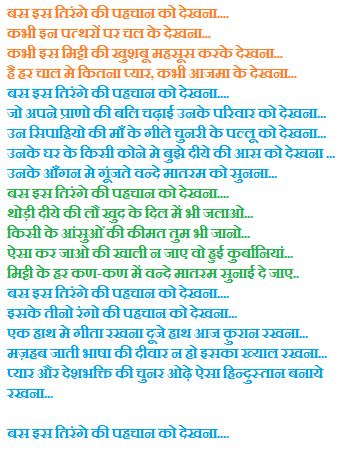 बस इस तिरंगे की पहचान को देखना....
कभी इन पत्थरों पर चल के देखना...
कभी इस मिट्टी की खुशबू महसूस करके देखना...
हैं हर चाल मे कितना प्यार, कभी आजमा के देखना...
बस इस तिरंगे की पहचान को देखना....
जो अपने प्राणो की बलि चढ़ाई उनके परिवार को देखना...
उन सिपाहियो की माँ के गीले चुनरी के पल्लू को देखना...
उनके घर के किसी कोने मे बुझे दीये की आस को देखना ...
उनके आँगन मे गूंजते वन्दे मातरम को सुनना...
बस इस तिरंगे की पहचान को देखना....
थोड़ी दीये की लौं खुद के दिल में भी जलाओ...
किसी के आंसुओं की कीमत तुम भी जानो...
ऐसा कर जाओ की खाली न जाए वो हुई कुर्बानियां...
मिट्टी के हर कण-कण में वन्दे मातरम सुनाई दे जाए..
बस इस तिरंगे की पहचान को देखना....
इसके तीनो रंगो की पहचान को देखना...
एक हाथ मे गीता रखना दूजे हाथ आज कुरान रखना...
मज़हब जाती भाषा की दीवार न हो इसका ख्याल रखना...
प्यार और देशभक्ति की चुनर ओढ़े ऐसा हिन्दुस्तान बनाये
रखना...
बस इस तिरंगे की पहचान को देखना....